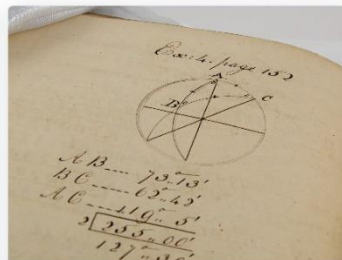 Ex: 4. page 152
A
C
B
AB---- 73°..13'
BC----- 62°..42'
AC-----119°.. 5'
2 255..00'
127..30'